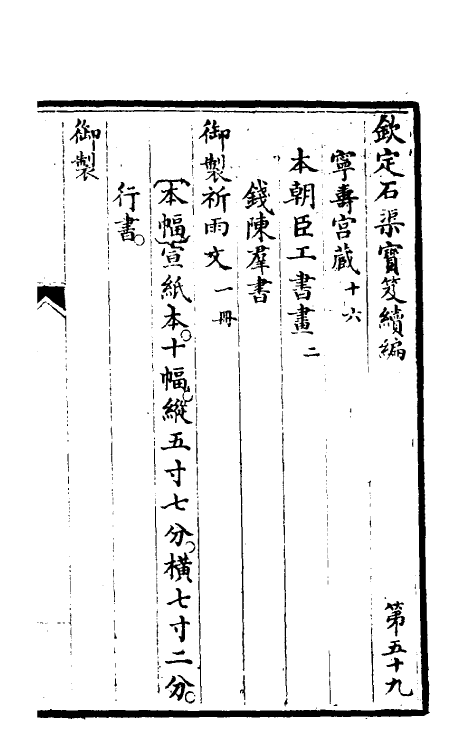 欽定石渠寶笈續編 第五十九
寧壽宮藏十六
本朝臣工書畫二
錢陳羣書
御製祈雨文一冊
〔本幅〕宣紙本。十幅。縱五寸七分。橫七寸二分。
行書。
御製